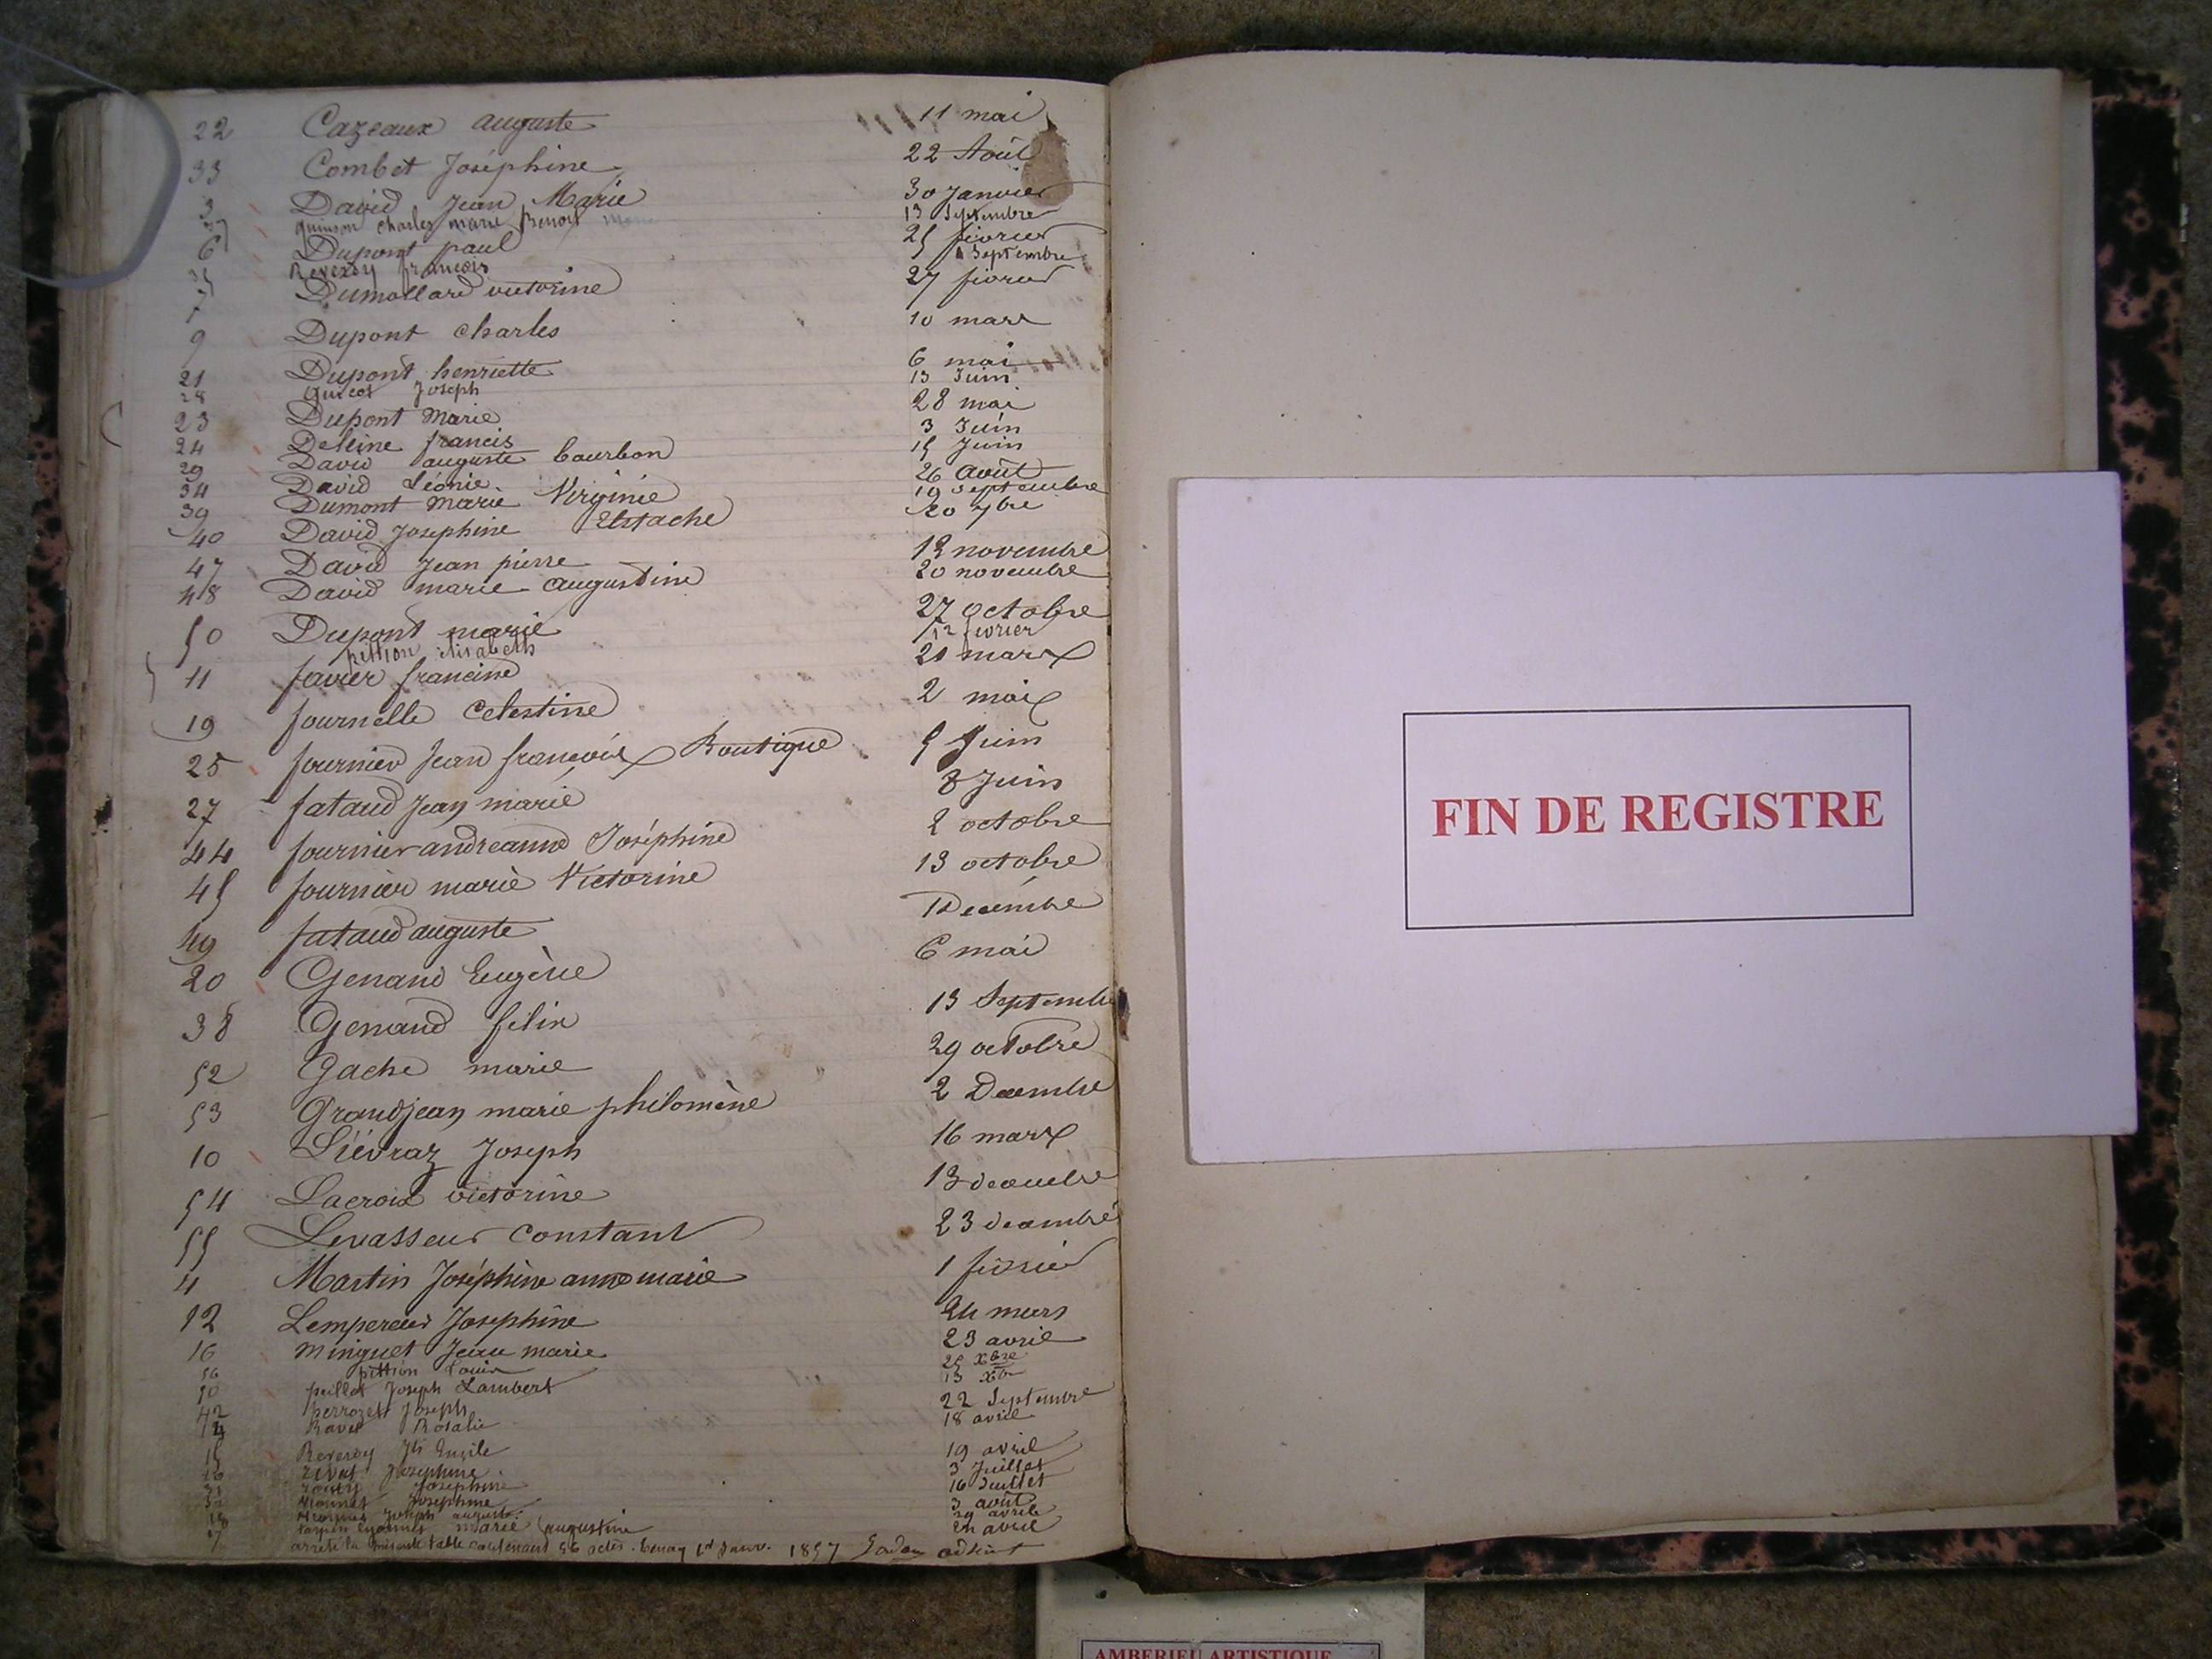 22 Cazeaux auguste 11 mai
33 Combet Joséphine 22 Août
3 David Jean Marie 30 Janvier
37 quinson charles marie Benoit 13 Septembre
6 Dupont paul 25 fevrier
35 Reveroy francois 1 Septembre
7 Dumollard victorine 27 fevrier
9 Dupont charles 10 mars
21 Dupont henriette 6 mai
28 Joseph 13 Juin
23 Dupont Marie 28 mai
24 francis 3 Juin
29 David auguste bourbon 15 Juin
34 David Léonie 26 Août
39 Dumont Marie Virginie 19 septembre
40 David Josephine Eustache 20 7bre
47 David Jean pierre 19 novembre
48 David marie augustine 20 novembre
50 Dupont marie 27 octobre
pittion elisabeth 12 fevrier
11 favier francine 21 mars
19 fournelle Celestine 2 mai
25 fournier Jean françois Boutique 5 Juin
27 fataud Jean marie 8 Juin
44 fournier andreanne Joséphine 2 octobre
45 fournier marie Victorine 13 octobre
49 fataud auguste Decembre
20 Genand Eugène 6 mai
38 Genand félix 13 Septembre
52 Gache marie 29 octobre
53 Grandjean marie philomène 2 Decembre
10 Liévraz Joseph 16 mars
54 Lacroix victorine 13 decembre
55 Levasseur Constant 23 decembre
4 Martin Joséphine anne marie 1 février
12 Lempereur Josephine 24 mars
16 Minguet Jean marie 23 avril
56 pittion Louis 25 Xbre
50 peillot Joseph Lambert 13 Xbre
42 perrozet Joseph 22 Septembre
14 Ravet Rosalie 18 avril
15 Reveroy Jh Emile 19 avril
Josephine 3 Juillet
31 Josephine 16 Juillet
32 Josephine 3 août
18 Joseph auguste 29 avril
17 marie augustine 24 avril
arrêté la présente table contenant 56 actes. Tenay 1er Janv. 1857
FIN DE REGISTRE
AMBERIEU ARTISTIQUE